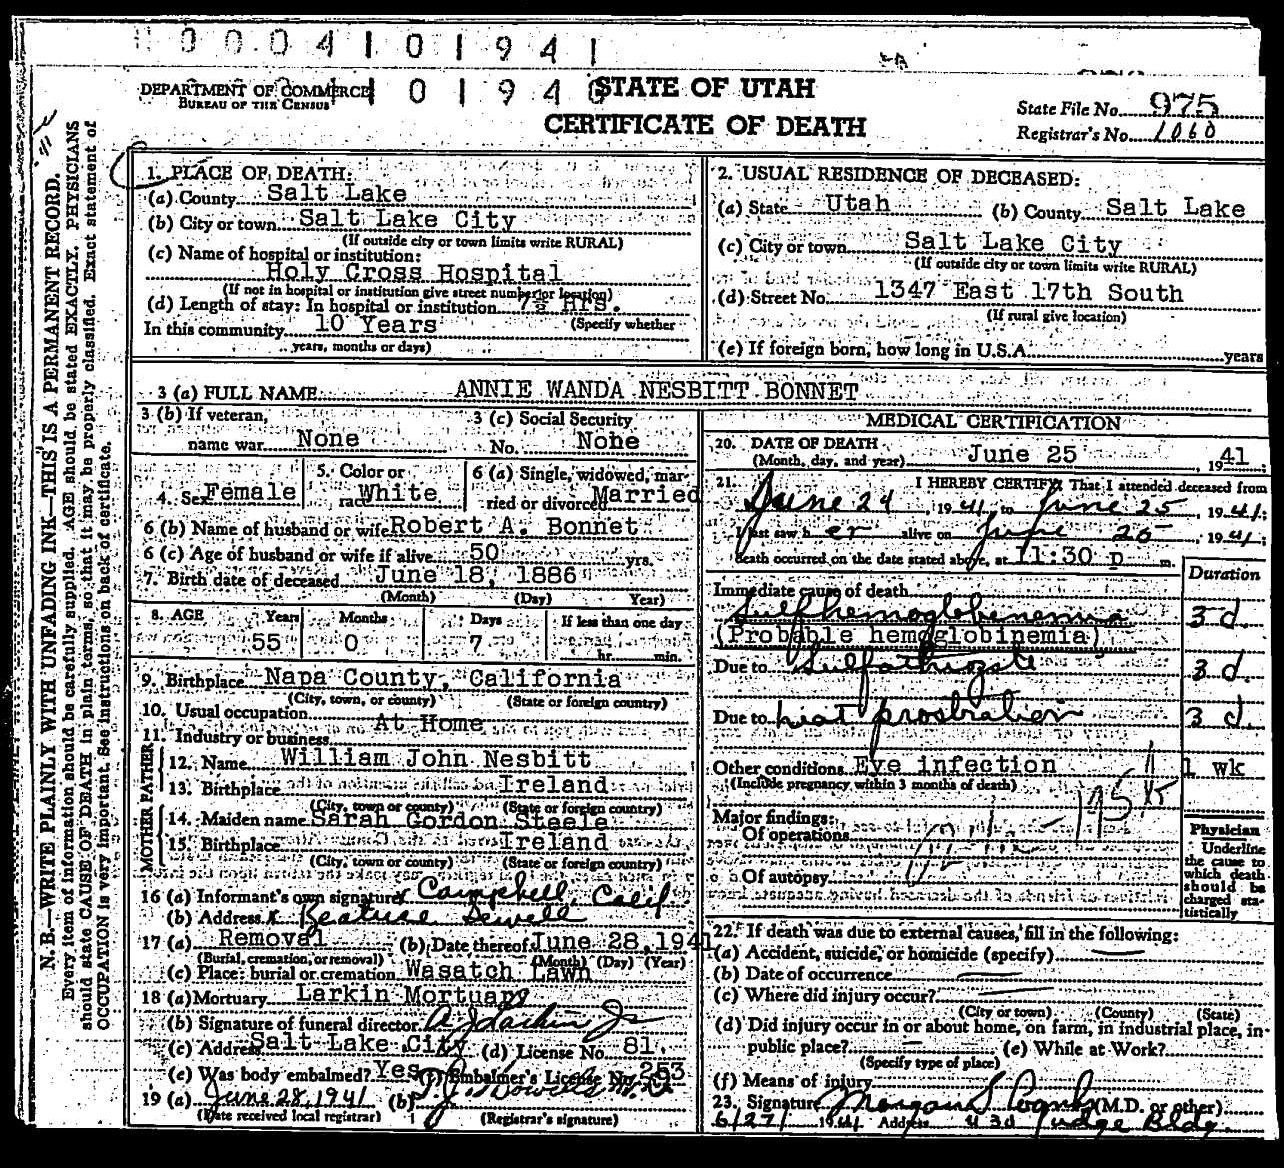 0004101941
DEPARTMENT OF COMMERCE
BUREAU OF THE CENSUS
STATE OF UTAH
CERTIFICATE OF DEATH
State File No. 975
Registrar's No. 1060
N. B.—WRITE PLAINLY WITH UNFADING INK—THIS IS A PERMANENT RECORD.
Every item of information should be carefully supplied. AGE should be stated EXACTLY. PHYSICIANS
should state CAUSE OF DEATH in plain terms, so that it may be properly classified. Exact statement of
OCCUPATION is very important. See instructions on back of certificate.
1. PLACE OF DEATH:
(a) County Salt Lake
(b) City or town Salt Lake City
(If outside city or town limits write RURAL)
(c) Name of hospital or institution:
Holy Cross Hospital
(If not in hospital or institution give street number or location)
(d) Length of stay: In hospital or institution 7½ Hrs.
In this community 10 Years (Specify whether
years, months or days)
2. USUAL RESIDENCE OF DECEASED:
(a) State Utah (b) County Salt Lake
(c) City or town Salt Lake City
(If outside city or town limits write RURAL)
(d) Street No. 1347 East 17th South
(If rural give location)
(e) If foreign born, how long in U.S.A. years
3 (a) FULL NAME ANNIE WANDA NESBITT BONNET
3 (b) If veteran,
name war None
3 (c) Social Security
No. None
4. Sex Female
5. Color or
race White
6 (a) Single, widowed, mar-
ried or divorced Married
6 (b) Name of husband or wife Robert A. Bonnet
6 (c) Age of husband or wife if alive 50 yrs.
7. Birth date of deceased June 18, 1886
(Month) (Day) Year)
8. AGE Years Months Days If less than one day
55 0 7 hr. min.
9. Birthplace Napa County, California
(City, town, or county) (State or foreign country)
10. Usual occupation At Home
11. Industry or business
FATHER
12. Name William John Nesbitt
13. Birthplace Ireland
(City, town or county) (State or foreign country)
MOTHER
14. Maiden name Sarah Gordon Steele
15. Birthplace Ireland
(City, town or county) (State or foreign country)
16 (a) Informant's own signature x Campbell, Calif
(b) Address x Beatrice Sewell
17 (a) Removal (b) Date thereof June 28, 1941
(Burial, cremation, or removal) (Month) (Day) (Year)
(c) Place: burial or cremation Wasatch Lawn
18 (a) Mortuary Larkin Mortuary
(b) Signature of funeral director A J Larkin Jr
(c) Address Salt Lake City (d) License No. 81.
(e) Was body embalmed? Yes (f) Embalmer's License No. 253
19 (a) June 28, 1941 (b)
(Date received local registrar) (Registrar's signature)
MEDICAL CERTIFICATION
20. DATE OF DEATH
(Month, day, and year) June 25, 1941;
21. I HEREBY CERTIFY That I attended deceased from
June 24, 1941, to June 25, 1941;
I last saw her alive on June 25, 1941;
death occurred on the date stated above, at 11:30 p m.
Duration
Immediate cause of death
Sulfhemoglobenemia 3 d.
(Probable hemoglobinemia)
Due to Sulfathiazole 3 d.
Due to heat prostration 3 d.
Other conditions Eye infection 1 wk
(Include pregnancy within 3 months of death)
Major findings:
Of operations
Of autopsy
Physician
Underline
the cause to
which death
should be
charged sta-
tistically
22. If death was due to external causes, fill in the following:
(a) Accident, suicide, or homicide (specify)
(b) Date of occurrence
(c) Where did injury occur?
(City or town) (County) (State)
(d) Did injury occur in or about home, on farm, in industrial place, in
public place? (e) While at Work?
(Specify type of place)
(f) Means of injury
23. Signature Morgan S (M.D. or other)
6/27/ 1941 Address Judge Bldg.